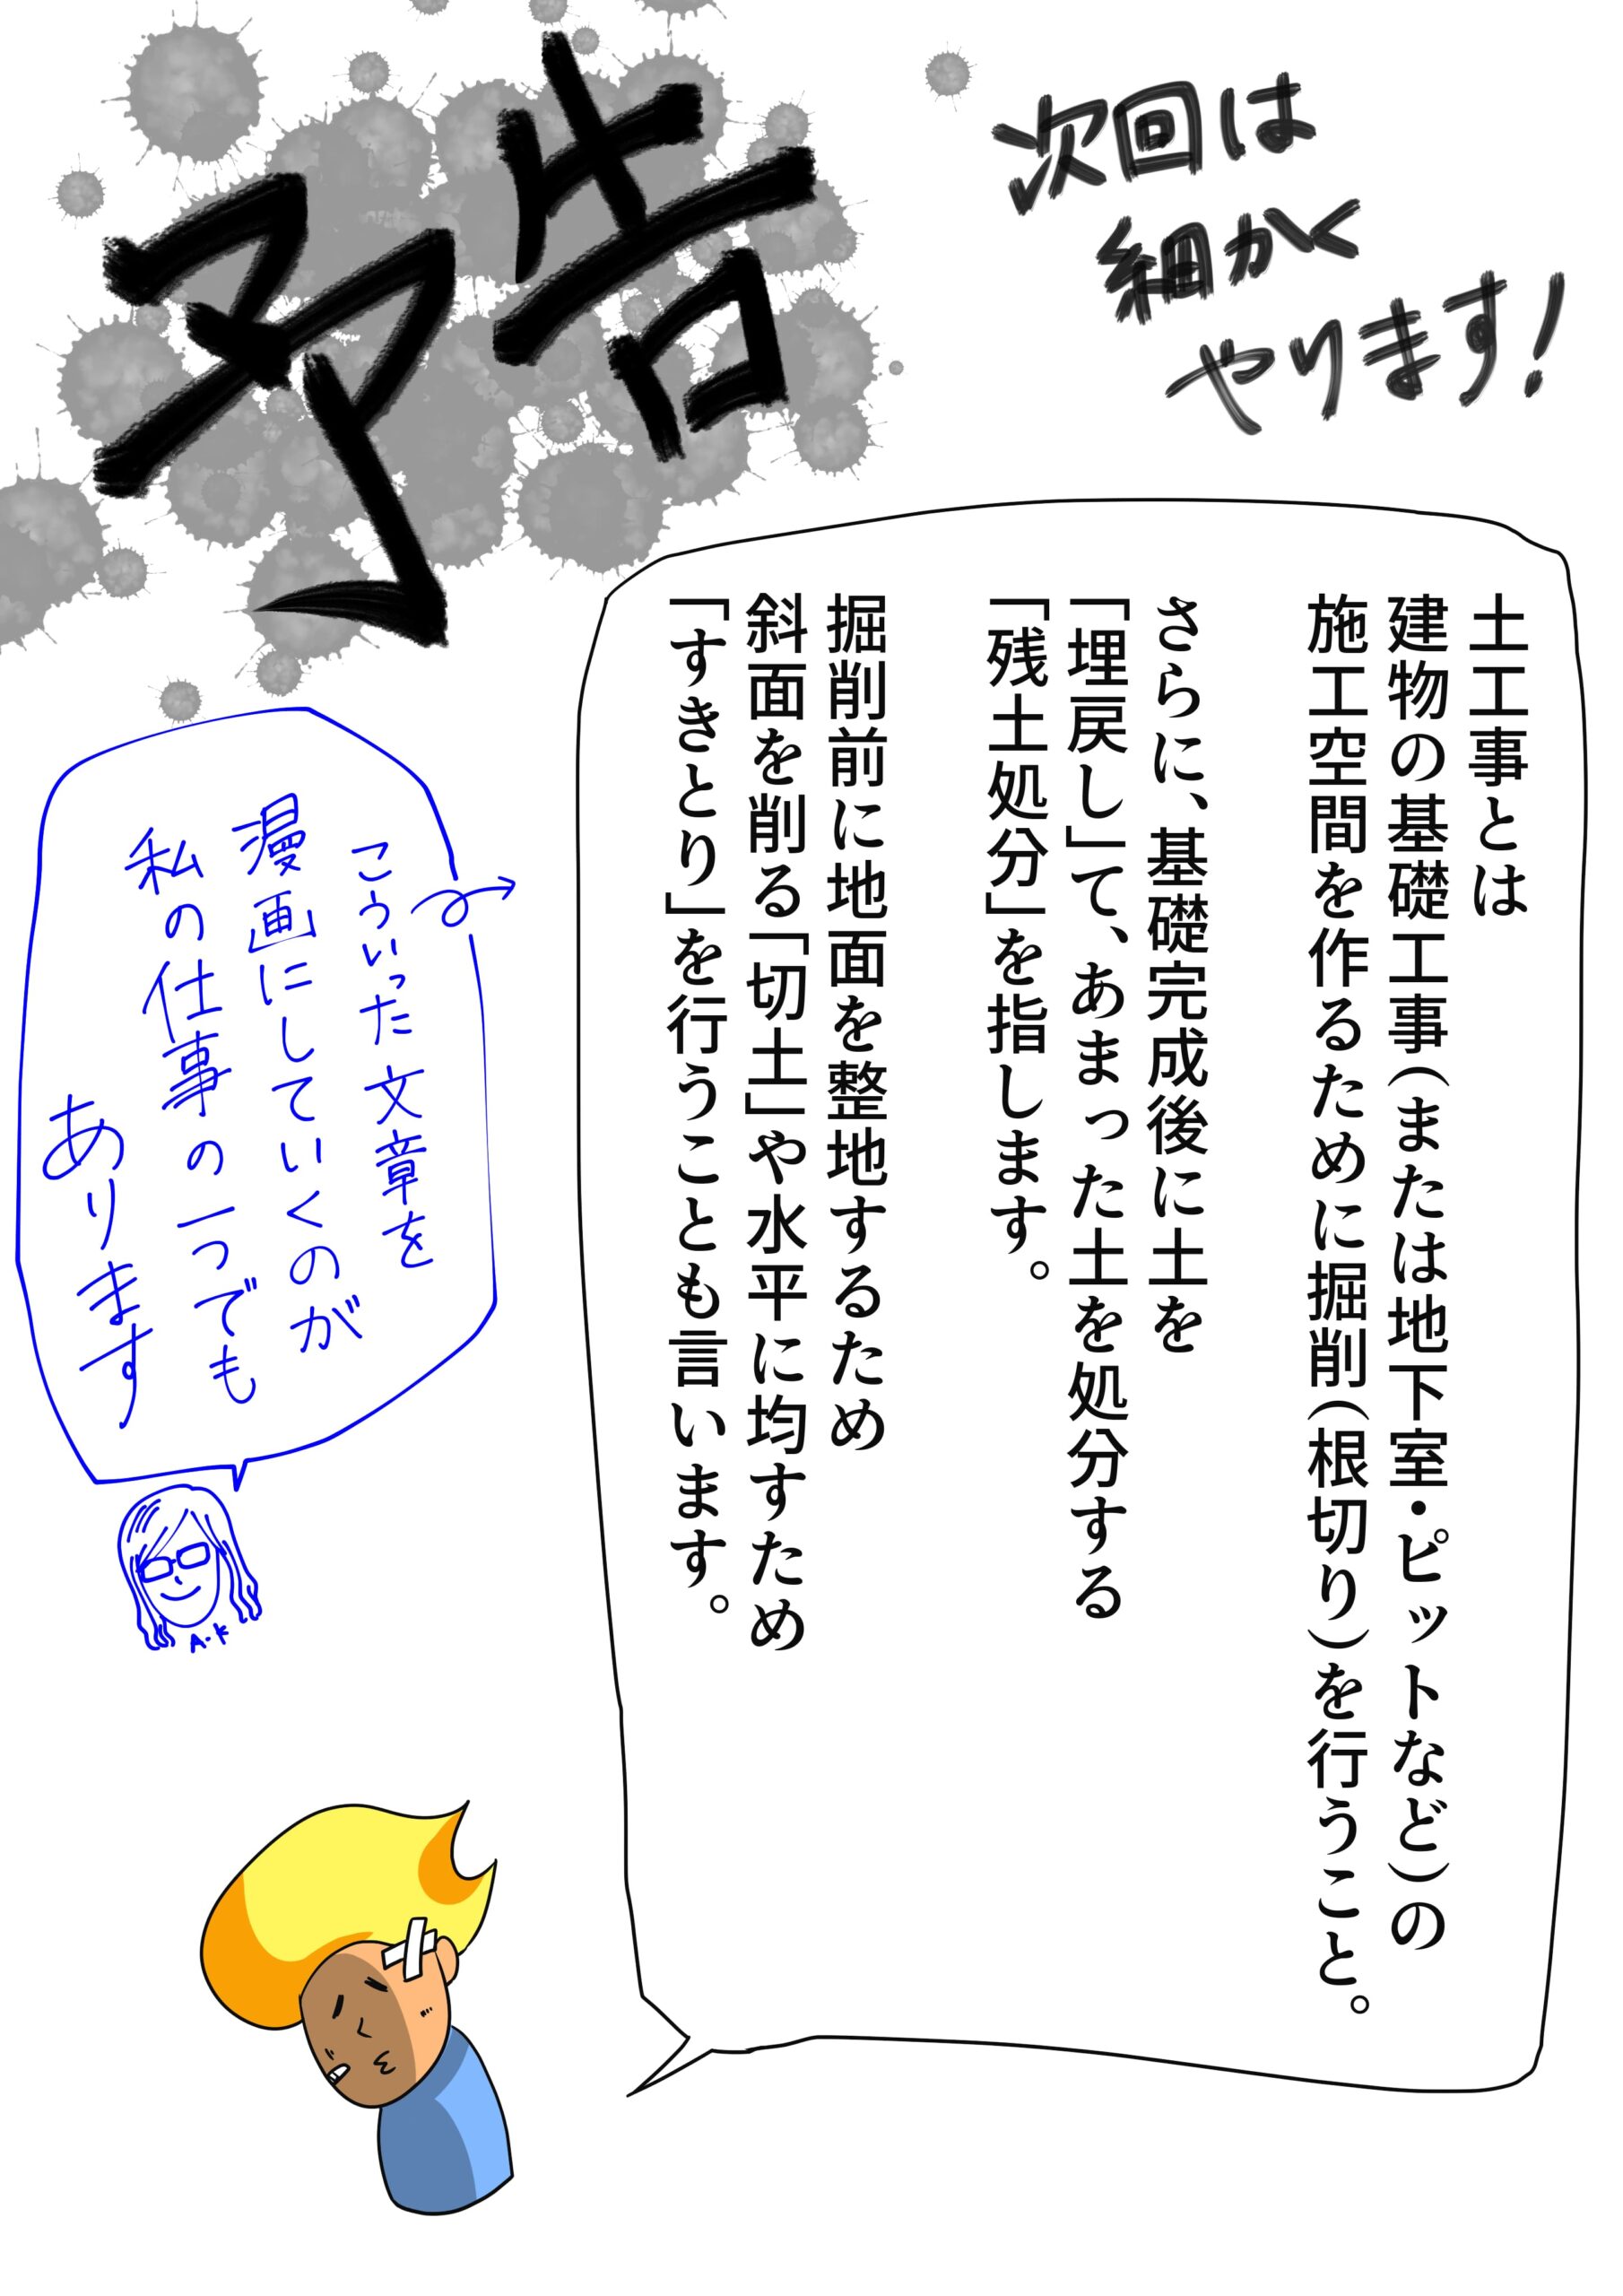 予告
次回は
細かく
やります！
土工事とは
建物の基礎工事（または地下室・ピットなど）の
施工空間を作るために掘削（根切り）を行うこと。
さらに、基礎完成後に土を
「埋戻し」て、あまった土を処分する
「残土処分」を指します。
掘削前に地面を整地するため
斜面を削る「切土」や水平に均すため
「すきとり」を行うことも言います。
こういった文章を
漫画にしていくのが
私の仕事の一つでも
あります
A.K